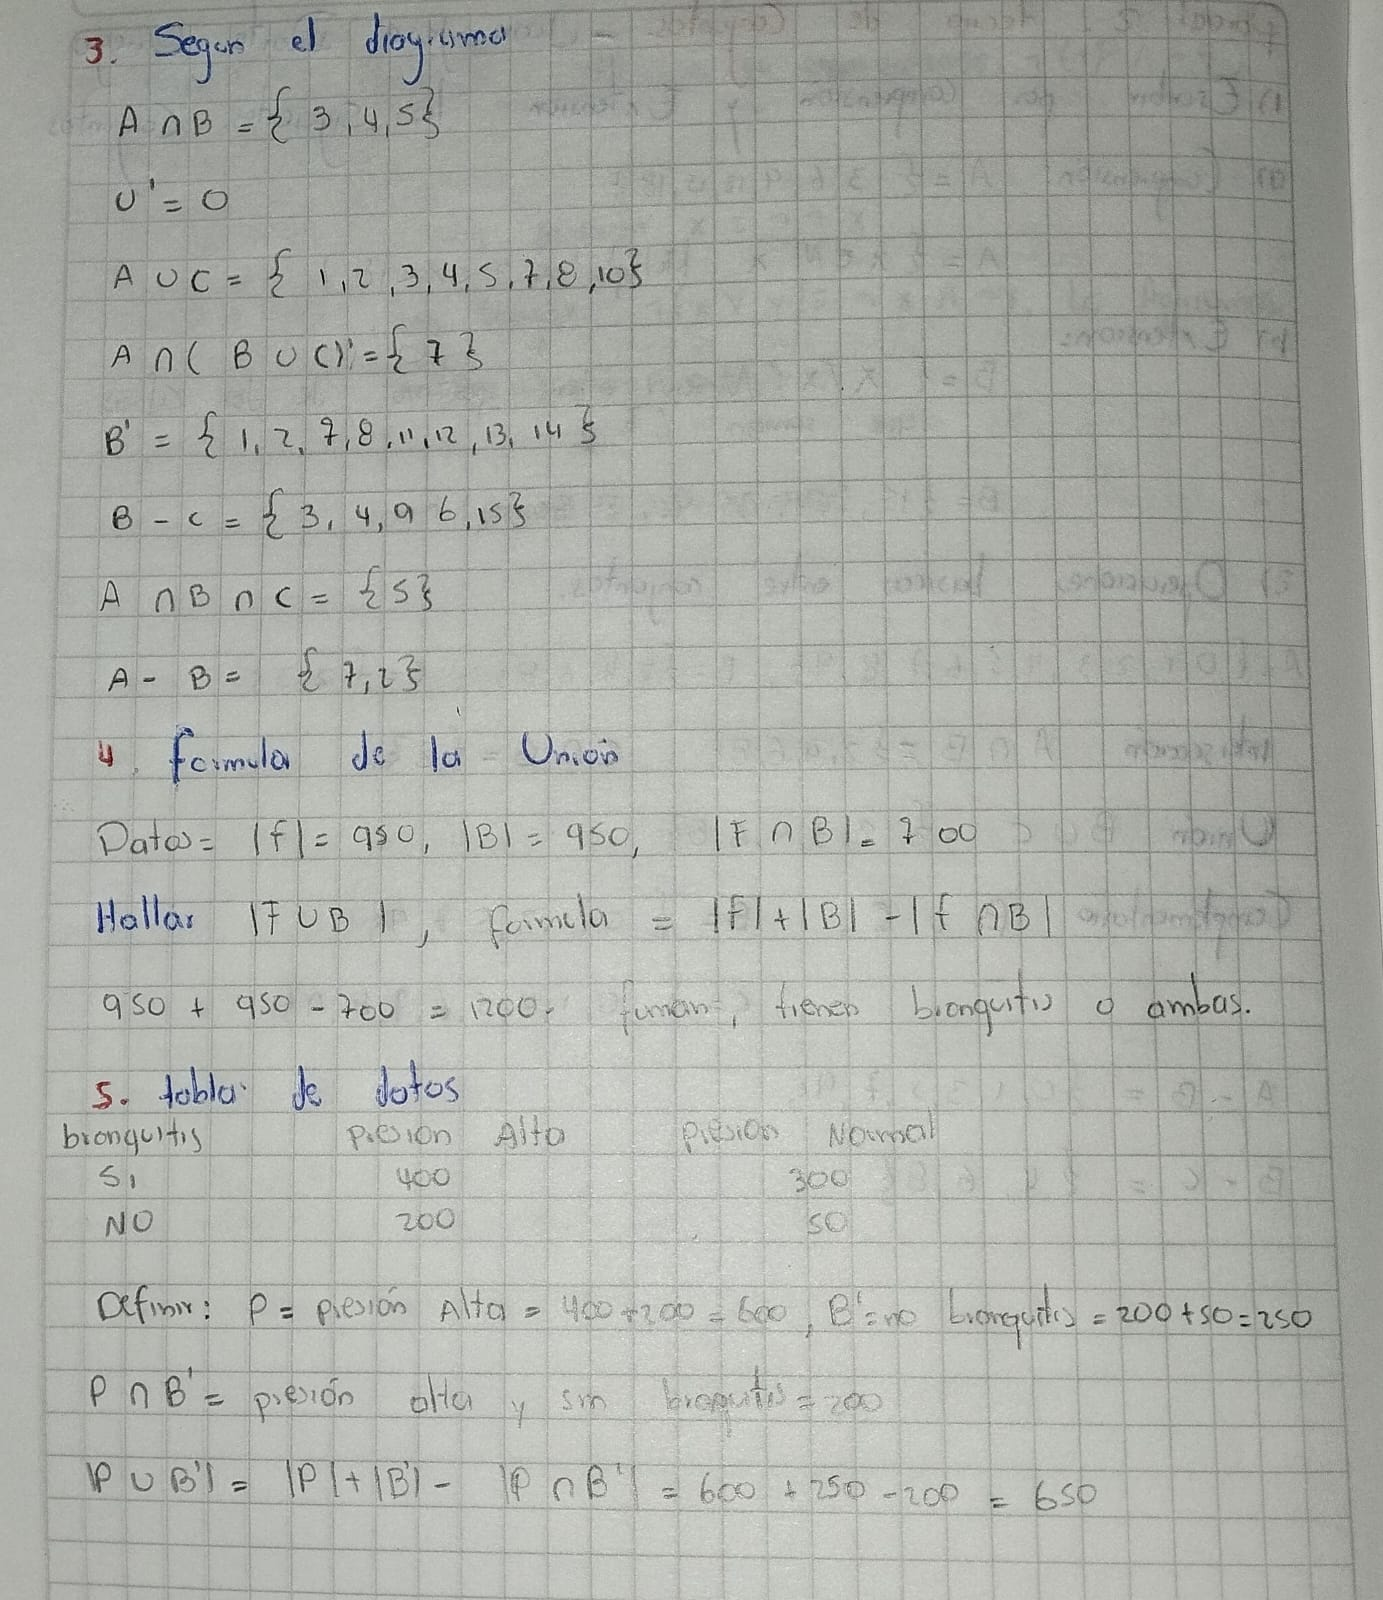 3. Segun el diagrama
A ∩ B = { 3, 4, 5}
U' = 0
A ∪ C = { 1, 2, 3, 4, 5, 7, 8, 10}
A ∩ ( B ∪ C)' = { 7 }
B' = { 1, 2, 7, 8, 11, 12, 13, 14 }
B - C = { 3, 4, 9 6, 15}
A ∩ B ∩ C = {5}
A - B = { 7, 2}
4. formula de la Unión
Datos = |f| = 950, |B| = 950, |F ∩ B| = 700
Hallar |F ∪ B|, formula = |f| + |B| - |f ∩ B|
950 + 950 - 700 = 1200. fuman, tienen bronquitis o ambas.
5. tabla de datos
bronquitis presion Alta presion Normal
Si 400 300
NO 200 50
Definir: P = presión Alta = 400 + 200 = 600, B' = no bronquitis = 200 + 50 = 250
P ∩ B' = presión alta y sin bronquitis = 200
|P ∪ B'| = |P| + |B'| - |P ∩ B'| = 600 + 250 - 200 = 650